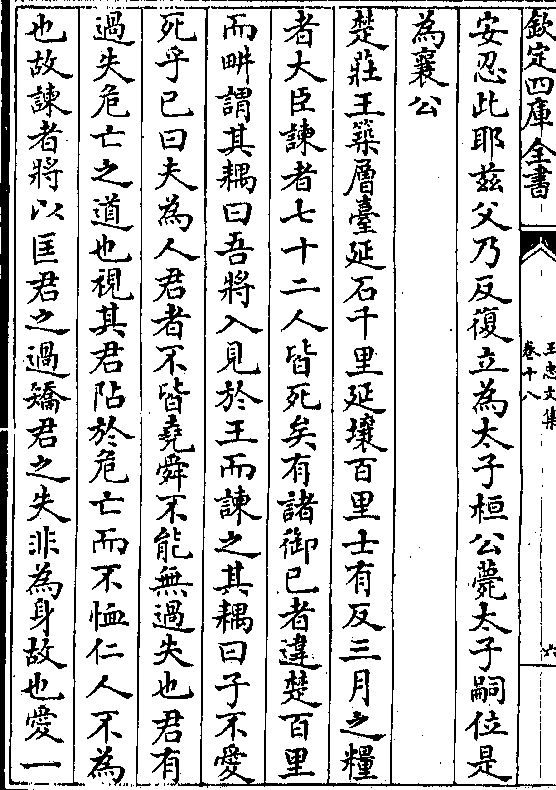 欽定四庫全書
王忠文集
卷十八
六
安忍此耶兹父乃反復立為太子桓公薨太子嗣位是
為襄公
楚莊王築層臺延石千里延壤百里士有反三月之糧
者大臣諫者七十二人皆死矣有諸御已者違楚百里
而畊謂其耦曰吾將入見於王而諫之其耦曰子不愛
死乎已曰夫為人君者不皆堯舜不能無過失也君有
過失危亡之道也視其君阽於危亡而不恤仁人不為
也故諫者將以匡君之過矯君之失非為身故也愛一